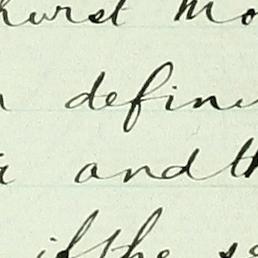 hurst Mo
defin
and th
if the se